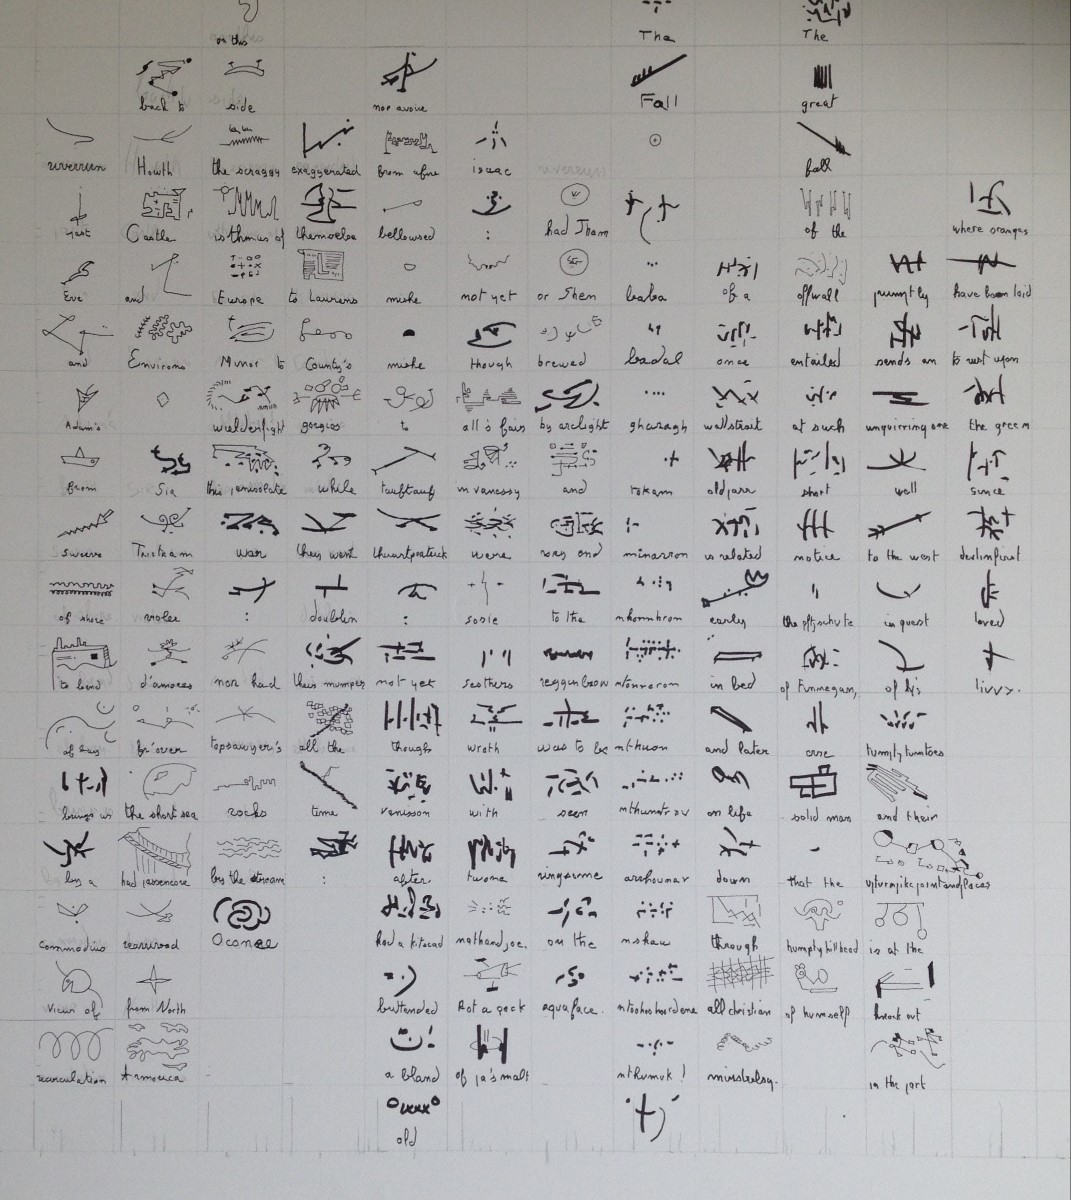 riverrun
past
Eve
and
Adam's
from
swerve
of shore
to bend
of bay
brings us
by a
commodius
vicus of
recirculation
back to
Howth
Castle
and
Environs
Sir
Tristram
violer
d'amores
fr'over
the short sea
had passencore
rearrived
from North
Armorica
on this
side
the scraggy
isthmus of
Europe
Minor to
wielderfight
his penisolate
war
:
nor had
topsawyer's
rocks
by the stream
Oconee
exaggerated
themselse
to Laurens
County's
gorgios
while
they went
doublin
their mumper
all the
time
:
nor avoice
from afire
bellowsed
mishe
mishe
to
tauftauf
thuartpeatrick
:
not yet
though
venisson
after
had a kitscad
buttended
a bland
old
isaac
:
not yet
though
all's fair
in vanessy
were
sosie
sesthers
wroth
with
twone
nathandjoe.
Rot a peck
of pa's malt
had Jham
or Shen
brewed
by arclight
and
rory end
to the
regginbrow
was to be
seen
ringsome
on the
aquaface.
The
Fall
baba
badal
gharagh
takam
minarron
nkonnbron
ntonnerron
nthuon
nthunntrov
arrhounaw
nskaw
ntoohoohoordene
nthurnuk!
of a
once
wallstrait
oldparr
is related
early
in bed
and later
on life
down
through
all christian
minstrelsy.
The
great
fall
of the
offwall
entailed
at such
short
notice
the pftjschute
of Finnegan,
erse
solid man
that the
humptyhillhead
of humself
prumptly
sends an
unquirring one
well
to the west
in quest
of his
tumptytumtoes
and their
upturnpikepointandplace
is at the
knock out
in the part
where oranges
have been laid
to rust upon
the green
since
devlinsfirst
loved
livvy.